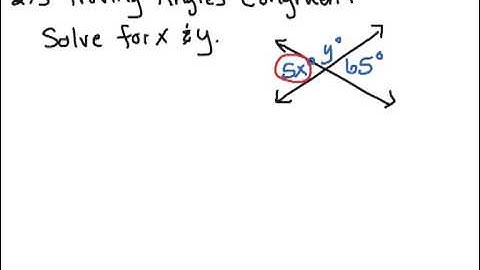 2.5 Proving Angles Congruent
Solve for x & y.
y°
5x° 65°